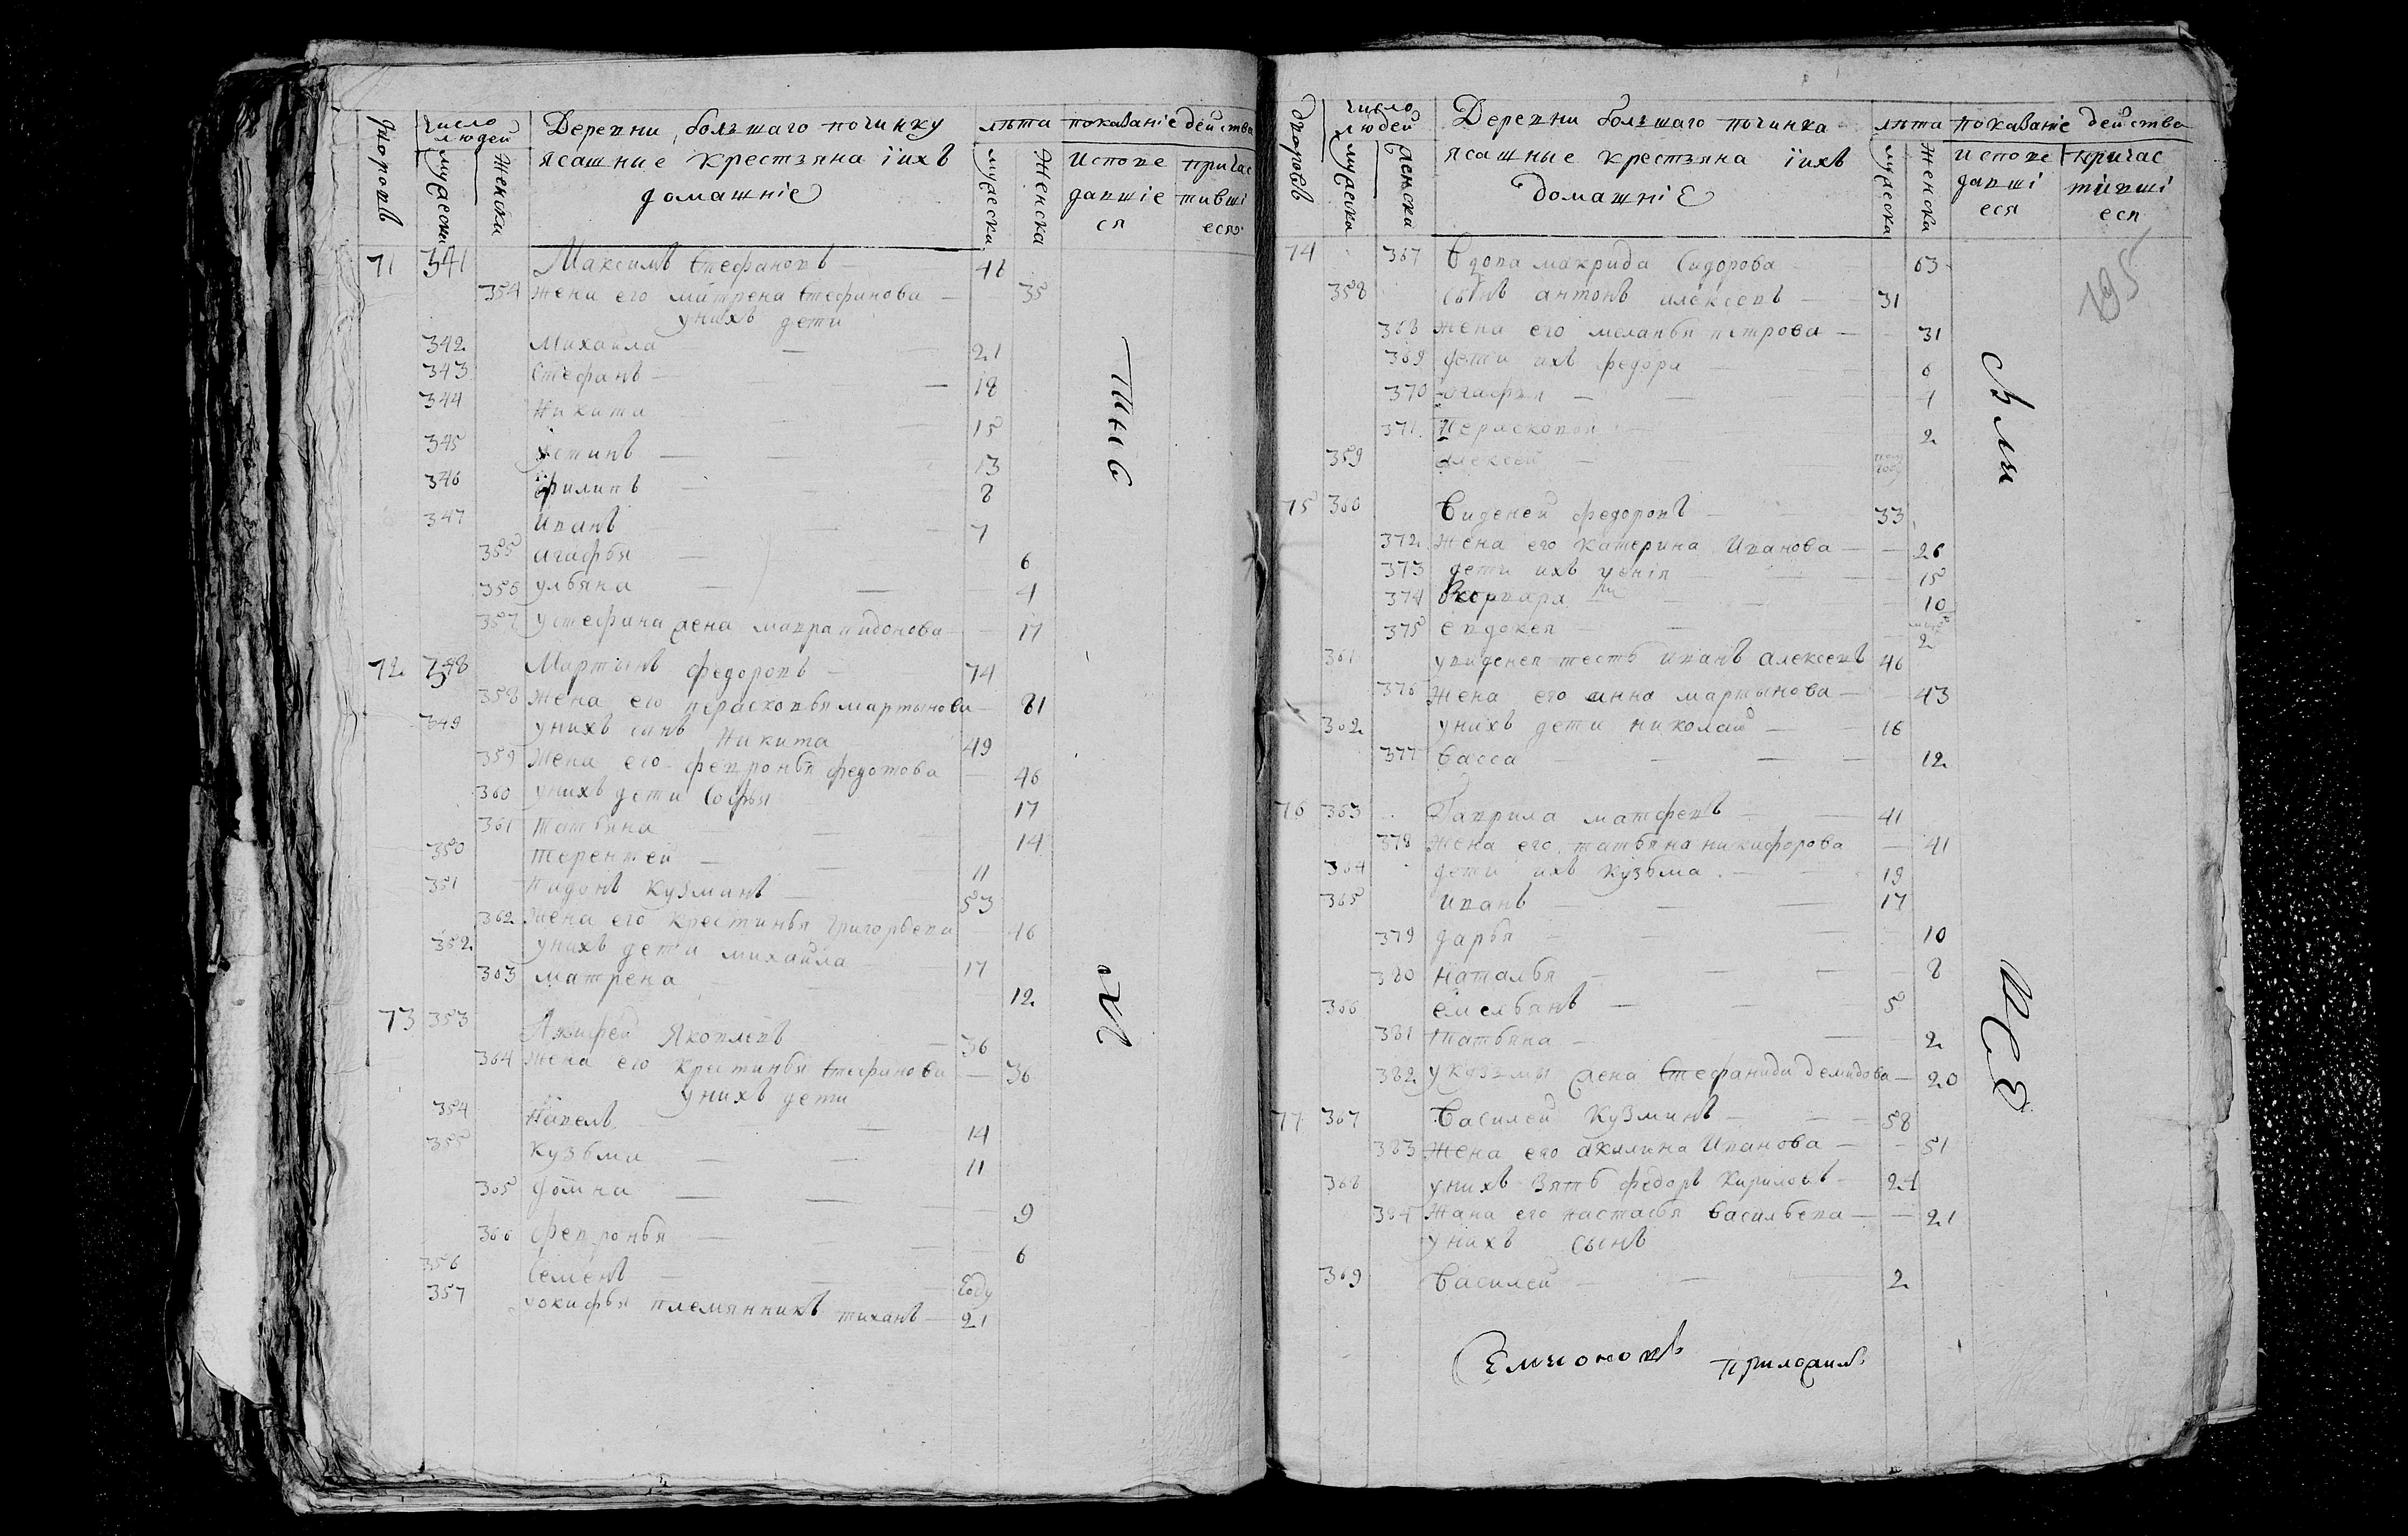 дворовъ число людей Деревни большаго починку лѣта показаніе действа
мужеска женска ясашные крестьяна ї ихъ мужеска женска испове причас
домашніе давшіе тивші
ся еся
71 341 Максимъ Стефановъ
354 жена его матрена Стефанова 35
у нихъ дети
342 Михаила 21
343 Стефанъ 18
344 Никита 15
345 Устинъ 13
346 филипъ 8
347 Иванъ 7
355 агафья 6
356 ульяна 4
357 у стефана жена мавра 17
72 348 Мартынъ федоровъ 74
358 жена его парасковья мартынова 81
349 у нихъ сынъ Никита 49
359 жена его февронья федотова 46
360 у нихъ дети Софья 17
361 татьяна 14
350 терентей 11
351 Кузминъ 53
362 жена его крестинья григорьева 46
352 у нихъ дети михаила 17
363 матрена 12
73 353 Яковлевъ 36
364 жена его крестинья стефанова 36
у нихъ дети
354 Павелъ 14
355 Кузьма 11
365 домна 9
366 февронья 6
356 Семенъ году
357 племянникъ тиханъ 21
дворовъ число людей Деревни большаго починка лѣта показаніе действа
мужеска женска ясашные крестьяна ї ихъ мужеска женска испове причас
домашніе давші тивші
еся еся
195
74 367 вдова макрида Сидорова 63
358 сынъ антонъ алексевъ 31
368 жена его меланья петрова 31
369 дети ихъ федора 6
370 агафья 4
371 Перасковья 2
359 алексей полу году
75 360 федоровъ 33
372 жена его катерина Иванова 26
373 дети ихъ 15
374 варвара 10
375 евдокея 2
361 тесть иванъ алексевъ 46
376 жена его анна мартынова 43
362 у нихъ дети николай 16
377 васса 12
76 363 Гаврила матфевъ 41
378 жена его татьяна никифорова 41
364 дети ихъ кузьма 19
365 Иванъ 17
379 дарья 10
380 наталья 8
366 емельянъ 5
381 татьяна 2
382 у кузьмы жена стефанида демидова 20
77 367 Василей Кузминъ 58
383 жена его акилина Иванова 51
368 у нихъ зять федоръ Кириловъ 24
384 жана его настасья васильева 21
у нихъ сынъ
369 Василей 2